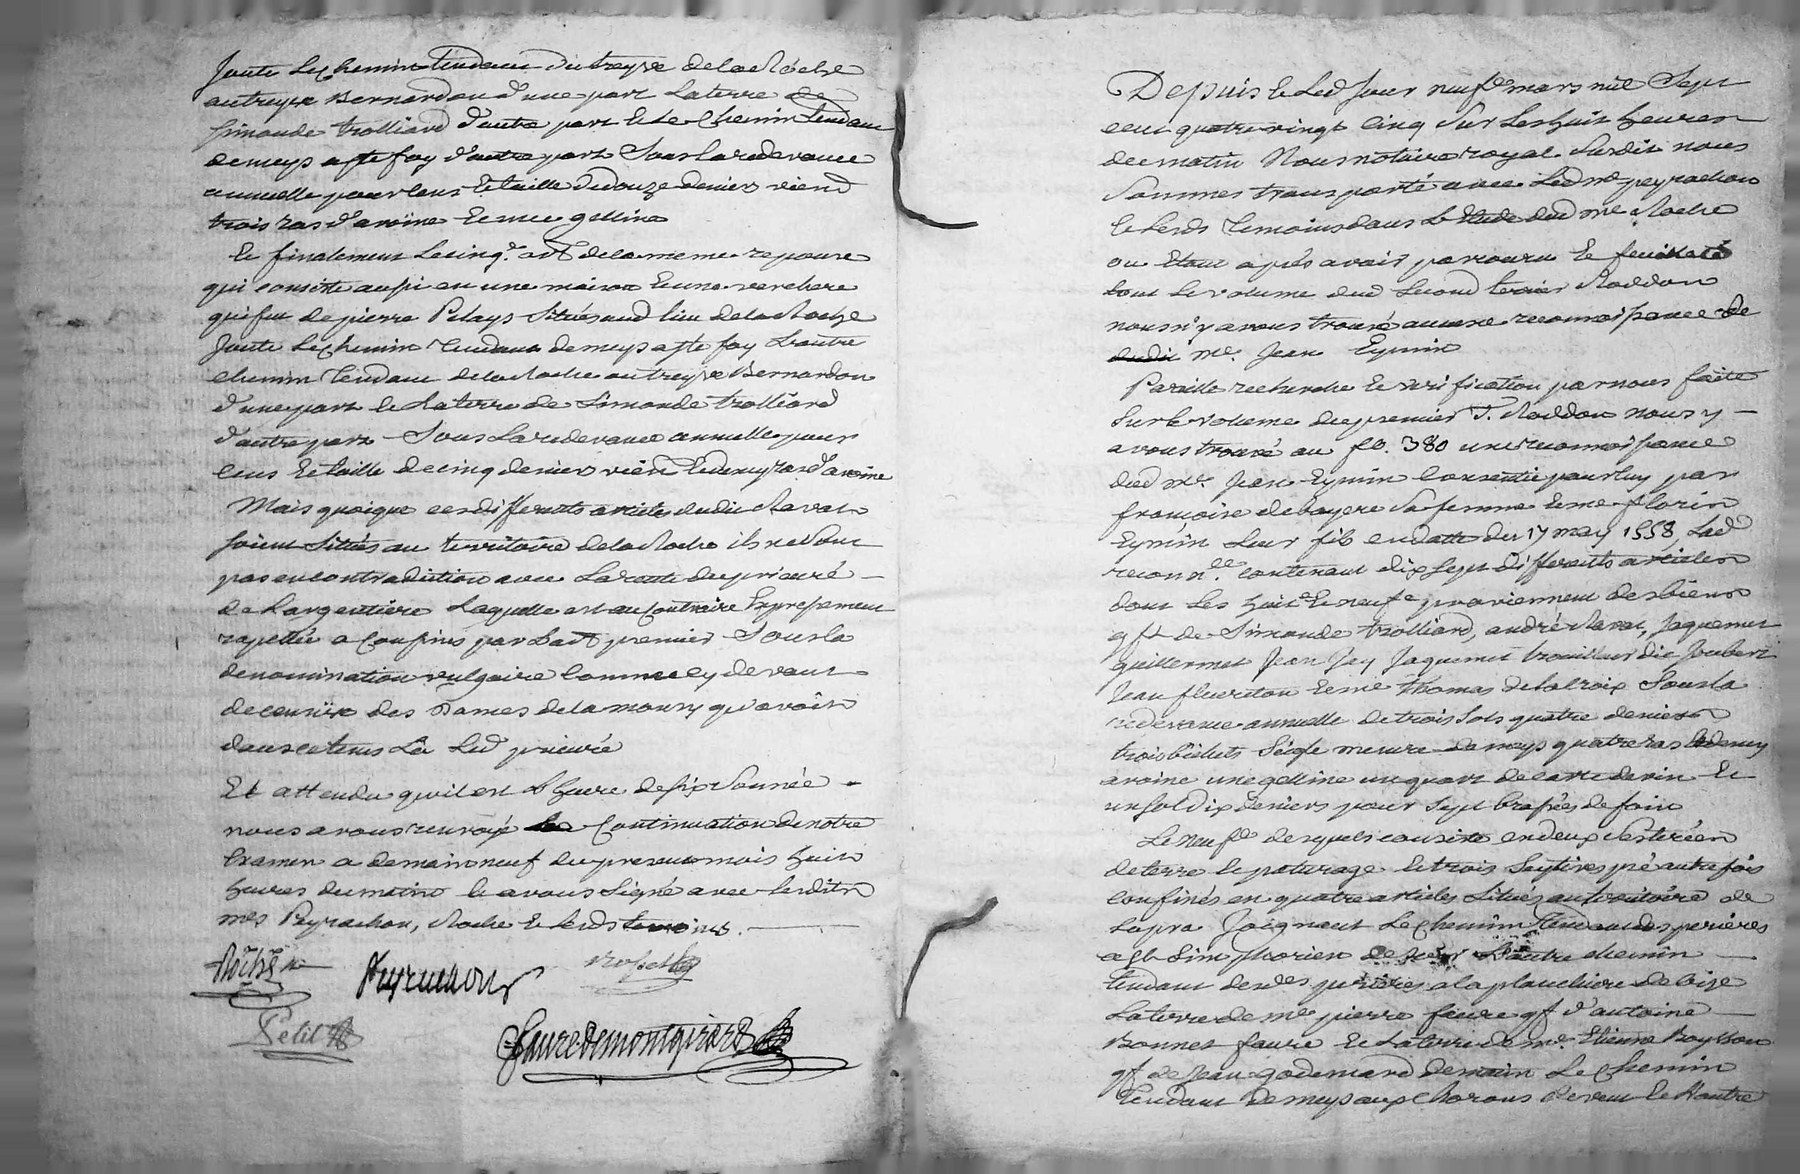 Joute Le chemin tendant du treyve de la Roche
au treyve Bernardon d'une part La terre de
Simonde trolliard d'autre part et Le Chemin tendant
de meys a ste foy d'autre part Sous la redevance
annuelle pour Cens et taille de douze deniers vienn
trois ras d'avoine et une gelline
Et finalement Le cinq.e art de la meme reponse
qui consiste aussi en une maison et une verchere
qui fut de pierre Pelays Situés aud lieu de la Roche
Joute Le chemin tendant de meys a ste foy L'autre
chemin tendant de la Roche au treyve Bernardon
d'une part et La terre de Simonde trolliard
d'autre part Sous La redevance annuelle pour
Cens et taille de cinq deniers vien et demy ras d'avoine
Mais quoique ces differents articles dudit Ravat
soient Situés au territoire de la Roche ils ne Sont
pas en contradiction avec La rente du prieuré
de Largentiere Laquelle est au Contraire Expressement
rapellée a Confins par L'art premier Sous la
denomination vulgaire Comme cy devant
de censive des Dames de la mours qu'avoit
dans ce tems La Led prieuré
Et attendu qu'il est L'heure de six Sonnée
nous avons renvoyé la Continuation de notre
Examen a demain neuf du present mois huit
heures du matin et avons Signé avec lesdits
mes Peyrachon, Roche et Lesds temoins.
Roche
Peyrachon
Petit
Faure demontgirard
Depuis et Led Jour neuf mars mil Sept
cent quatre vingt Cinq Sur Les huit heures
de matin Nous notaire royal Susdit nous
Sommes transporté avec Led me peyrachon
et Lesds temoins dans L'Etude dud me Roche
ou Etant après avoir parcouru et feuilleté
tout Le volume dud Second terrier Raddon
nous n'y avons trouvé aucune reconnoissance de
dudit me. Jean Eymin
Pareille recherche et verification par nous faite
Sur le volume du premier T. Raddon nous y
avons trouvé au fo. 380 une reconnoissance
dud me. Jean Eymin Consentie pour luy par
francoise de bayere Sa femme et me florin
Eymin Leur fils en datte du 17 may 1558, Lad
reconn.ce contenant dix Sept differents articles
dont Les huit et neuf.e proviennent des biens
qft de Simonde trolliard, andré Ravat, Jaquemet
guillermet Jean Jay Jaquemet trouilleur dit Joubert
Jean fleuriton et me Thomas de la croix Sous la
redevance annuelle de trois Sols quatre deniers
trois bichets Seigle mesure de meys quatre ras et demy
avoine une gelline un quart de carte de vin et
un Sol dix deniers pour Sept brassées de foin
Le neuf.e desquels consiste en deux Sesterées
de terre et paturage et trois Seytives pré autrefois
confinés en quatre articles Situés au territoire de
Lapra Joignent Le chemin tendant des perières
a St Simphorien de L'autre chemin
tendant desdes perières a la planchiere de bize
La terre de me pierre faure qft d'antoine
Bonnet faurie et La terre de me. Etienne Boysson
qft de Jean godemard de matin Le Chemin
tendant de meys aux Chorons de vent Et L'autre